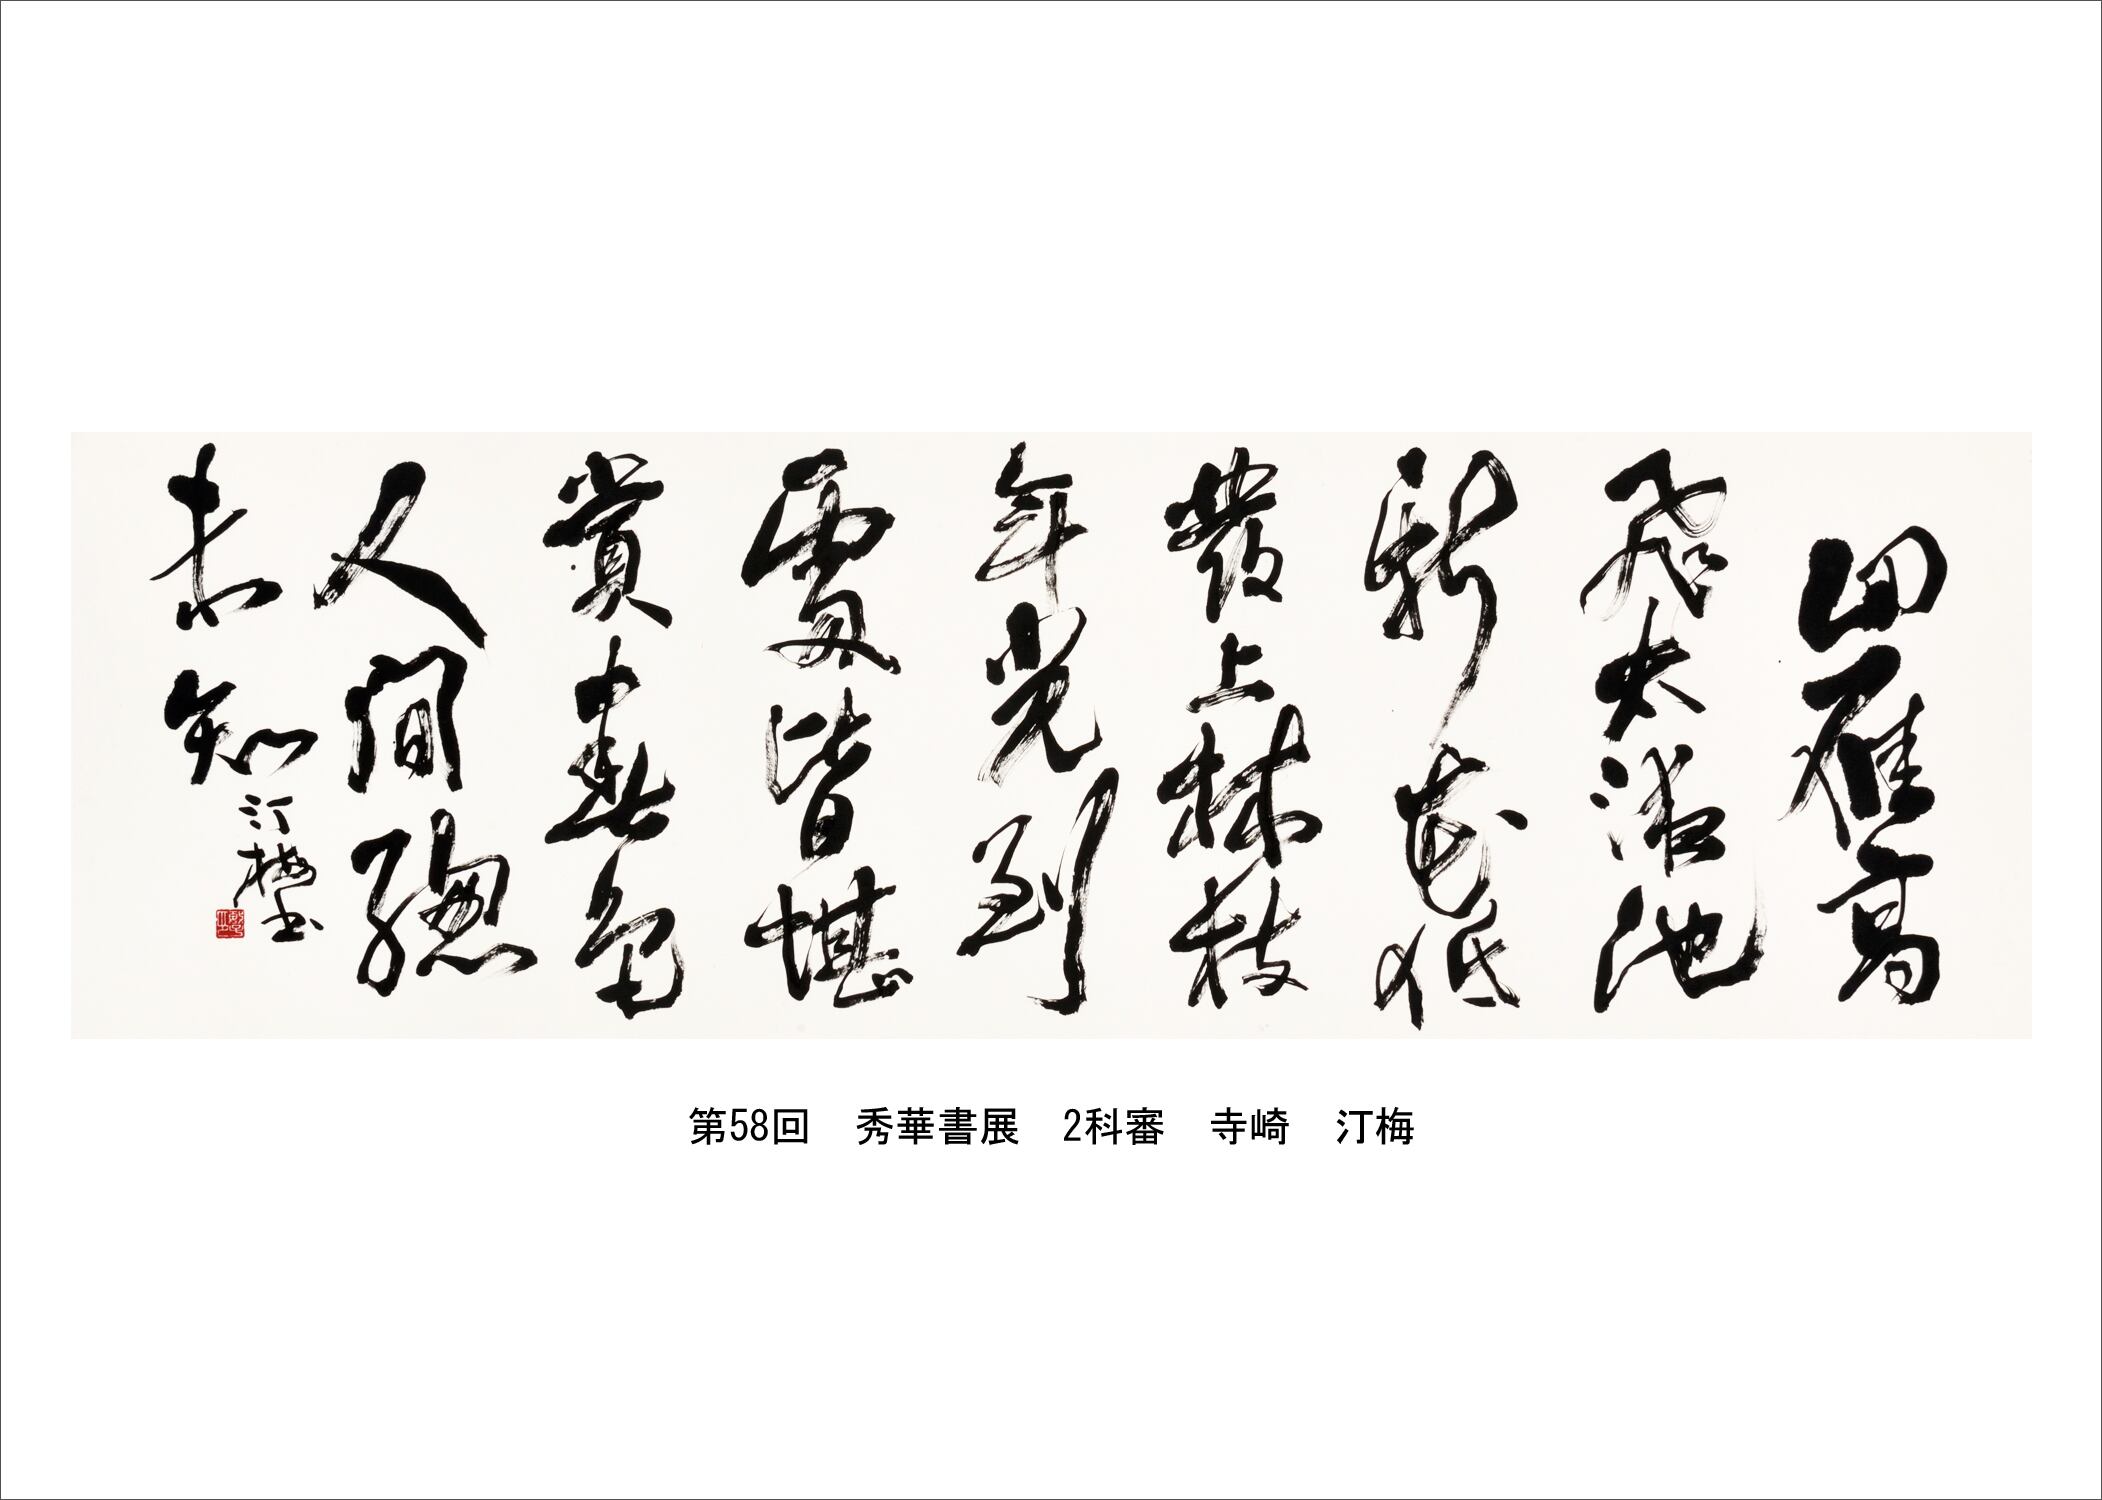 回雁高
飛太液池
新花低
發上林枝
年光到
處皆堪
賞春色
人間總
未知
汀梅書
第58回　秀華書展　2科審　寺崎　汀梅